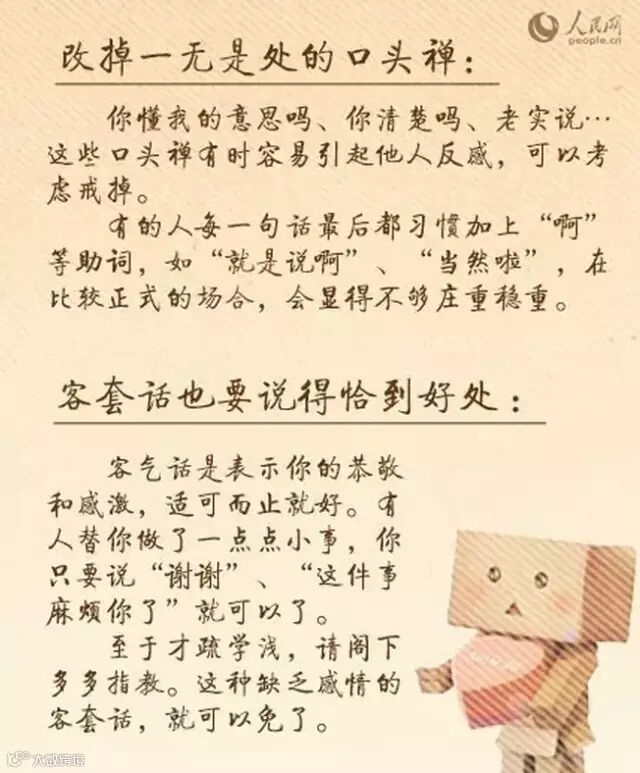 人民网
people.cn
改掉一无是处的口头禅：
你懂我的意思吗、你清楚吗、老实说…
这些口头禅有时容易引起他人反感，可以考
虑戒掉。
有的人每一句话最后都习惯加上“啊”
等助词，如“就是说啊”、“当然啦”，在
比较正式的场合，会显得不够庄重稳重。
客套话也要说得恰到好处：
客气话是表示你的恭敬
和感激，适可而止就好。有
人替你做了一点点小事，你
只要说“谢谢”、“这件事
麻烦你了”就可以了。
至于才疏学浅，请阁下
多多指教。这种缺乏感情的
客套话，就可以免了。
大数跨境